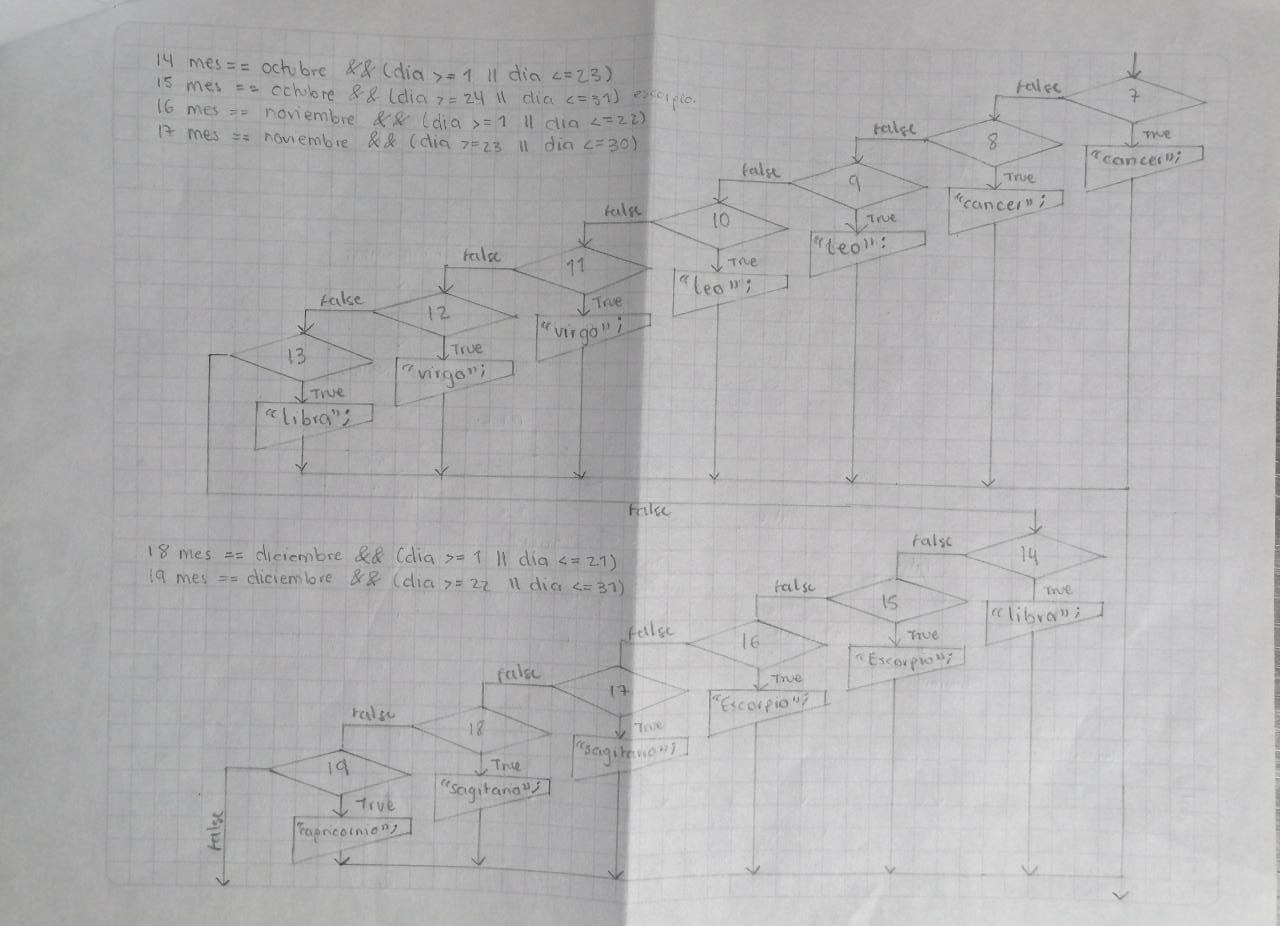 14 mes == octubre && (dia >= 1 || dia <= 23)
15 mes == octubre && (dia >= 24 || dia <= 31) escorpio.
16 mes == noviembre && (dia >= 1 || dia <= 22)
17 mes == noviembre && (dia >= 23 || dia <= 30)
7
False
True
"cancer";
8
False
True
"cancer";
9
False
True
"Leo";
10
False
True
"leo";
11
False
True
"virgo";
12
False
True
"virgo";
13
False
True
"libra";
False
18 mes == diciembre && (dia >= 1 || dia <= 21)
19 mes == diciembre && (dia >= 22 || dia <= 31)
14
False
True
"libra";
15
False
True
"Escorpio";
16
False
True
"Escorpio";
17
False
True
"sagitario";
18
False
True
"sagitario";
19
False
True
"capricornio";
False